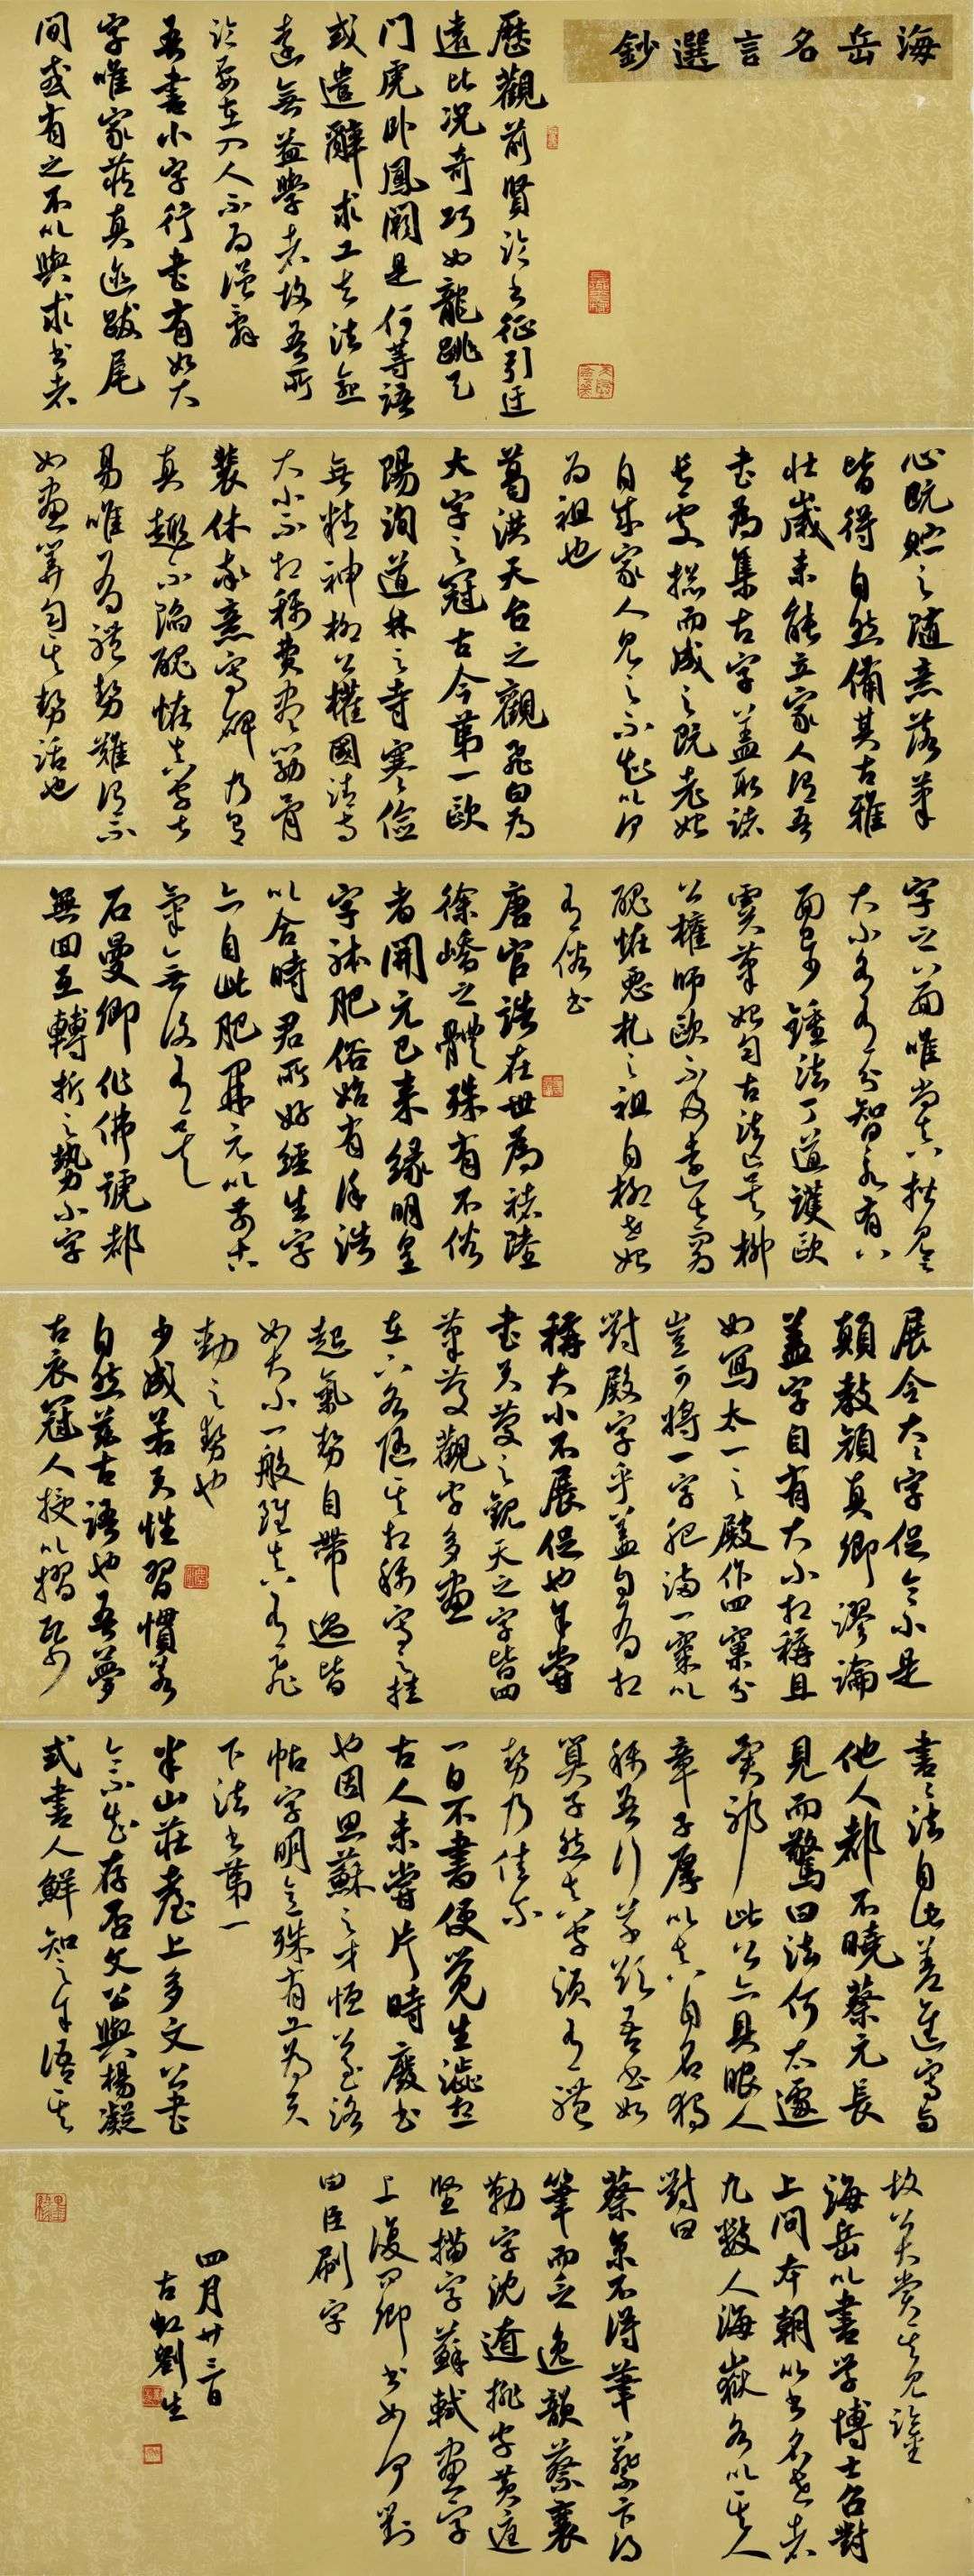 海岳名言選鈔
歷觀前賢論書征引迂
遠比況奇巧如龍跳天
門虎卧鳳闕是何等語
或遣辭求工去法逾
遠無益學者故吾所
論要在入人不為溢辭
吾書小字行書有如大
字唯家藏真迹跋尾
間或有之不以與求書者
心既貯之隨意落筆
皆得自然備其古雅
壯歲未能立家人謂吾
書為集古字蓋取諸
長處總而成之既老始
自成家人見之不知以何
為祖也
葛洪天台之觀飛白為
大字之冠古今第一歐
陽詢道林之寺寒儉
無精神柳公權國清寺
大小不相稱費盡筋骨
裴休率意寫碑乃有
真趣不陷醜怪真字甚
易唯有體勢難謂不
如畫算勻其勢活也
字之八面唯尚真楷見之
大小各有分智永有八
面已少鍾法丁道護歐
虞筆始勻古法亡矣柳
公權師歐不及遠甚而為
醜怪惡札之祖自柳世始
有俗書
唐官誥在世為褚陸
徐嶠之體殊有不俗
者開元已來緣明皇
字體肥俗始有徐浩
以合時君所好經生字
亦自此肥開元以前古
氣無復有矣
石曼卿作佛號都
無回互轉折之勢小字
展令大大字促令小是
顛教顏真卿謬論
蓋字自有大小相稱且
如寫太一之殿作四窠分
豈可將一字肥滿一窠以
對殿字乎蓋自有相
稱大小不展促也余嘗
書天慶之觀天之字皆四
筆慶觀字多畫
在下各隨其相稱寫之掛
起氣勢自帶過皆
如大小一般雖真有飛
動之勢也
少成若天性習慣若
自然茲古語也吾夢
古衣冠人授以摺紙
書書法自此差進寫與
他人都不曉蔡元長
見而驚曰法何太遽
異耶此公亦具眼人
章子厚以真自名獨
稱吾行草欲吾書如
算子然真字須有體
勢乃佳爾
一日不書便覺生澀想
古人未嘗片時廢書
也因思蘇之才恆公至洛
帖字明意殊有工為天
下法書第一
半山莊臺上多文公書
今不知存否文公與楊凝
式書人鮮知之余語其
故公大賞其見鑒
海岳以書學博士召對
上問本朝以書名世者
凡數人海嶽各以其人
對曰
蔡京不得筆蔡卞得
筆而乏逸韻蔡襄
勒字沈遼排字黃庭
堅描字蘇軾畫字
上復問卿書如何對
曰臣刷字
四月廿三日
古虹劉生